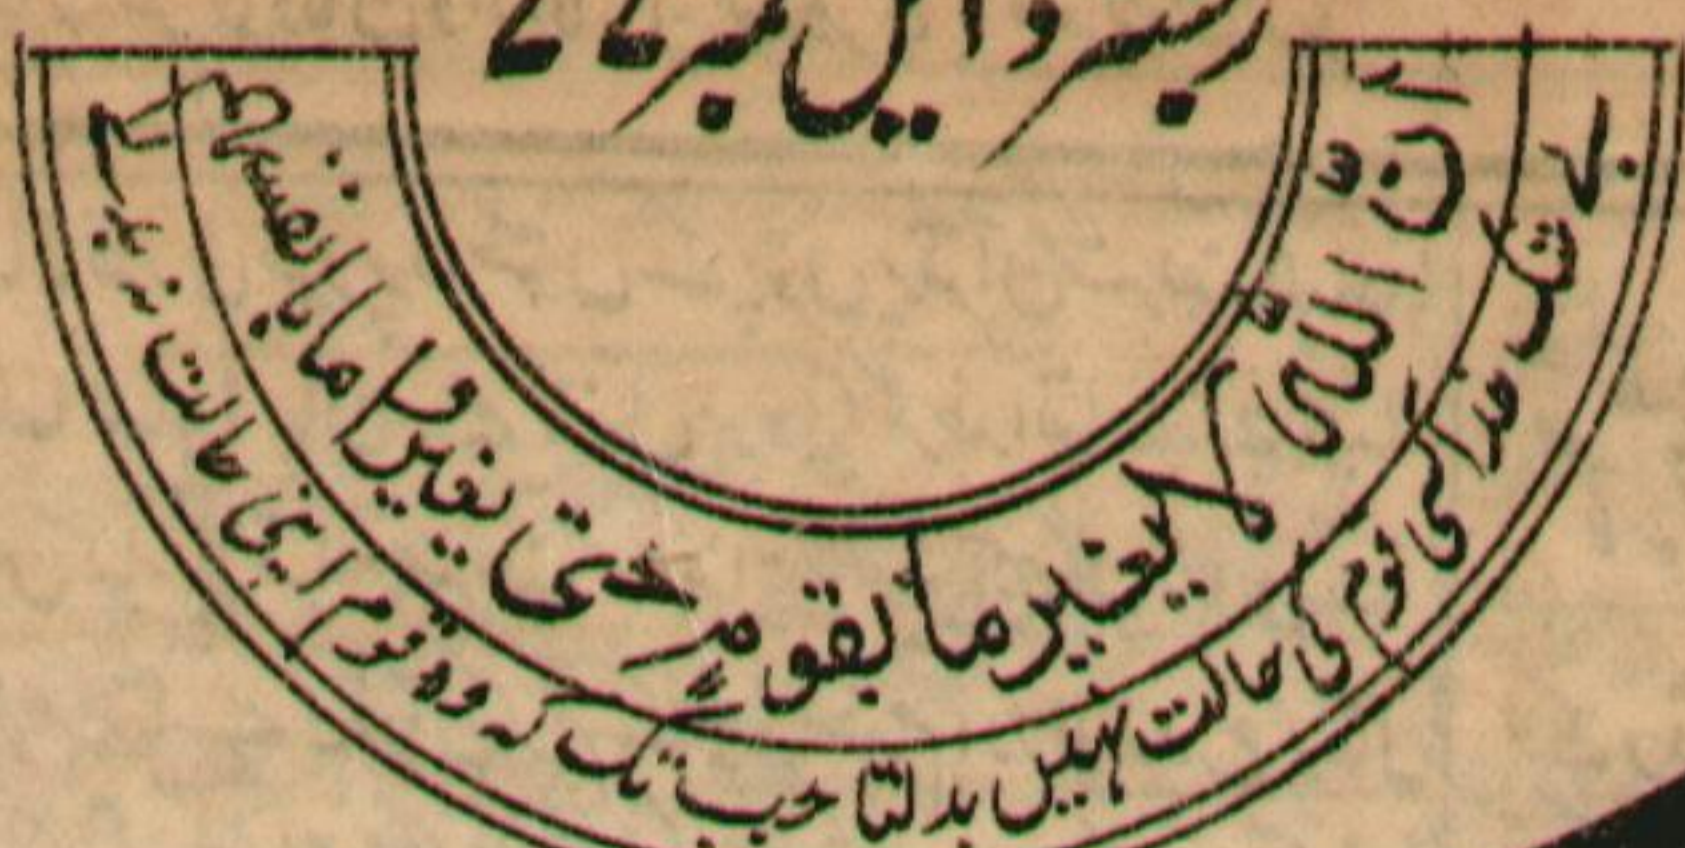 رجسٹرڈ ایل نمبر ۷۷
اِنَّ اللّٰہَ لا یغیر ما بقومٍ حتی یغیروا ما بانفسہم
بے شک خدا کسی قوم کی حالت نہیں بدلتا جب تک کہ وہ قوم اپنی حالت نہ بدلے